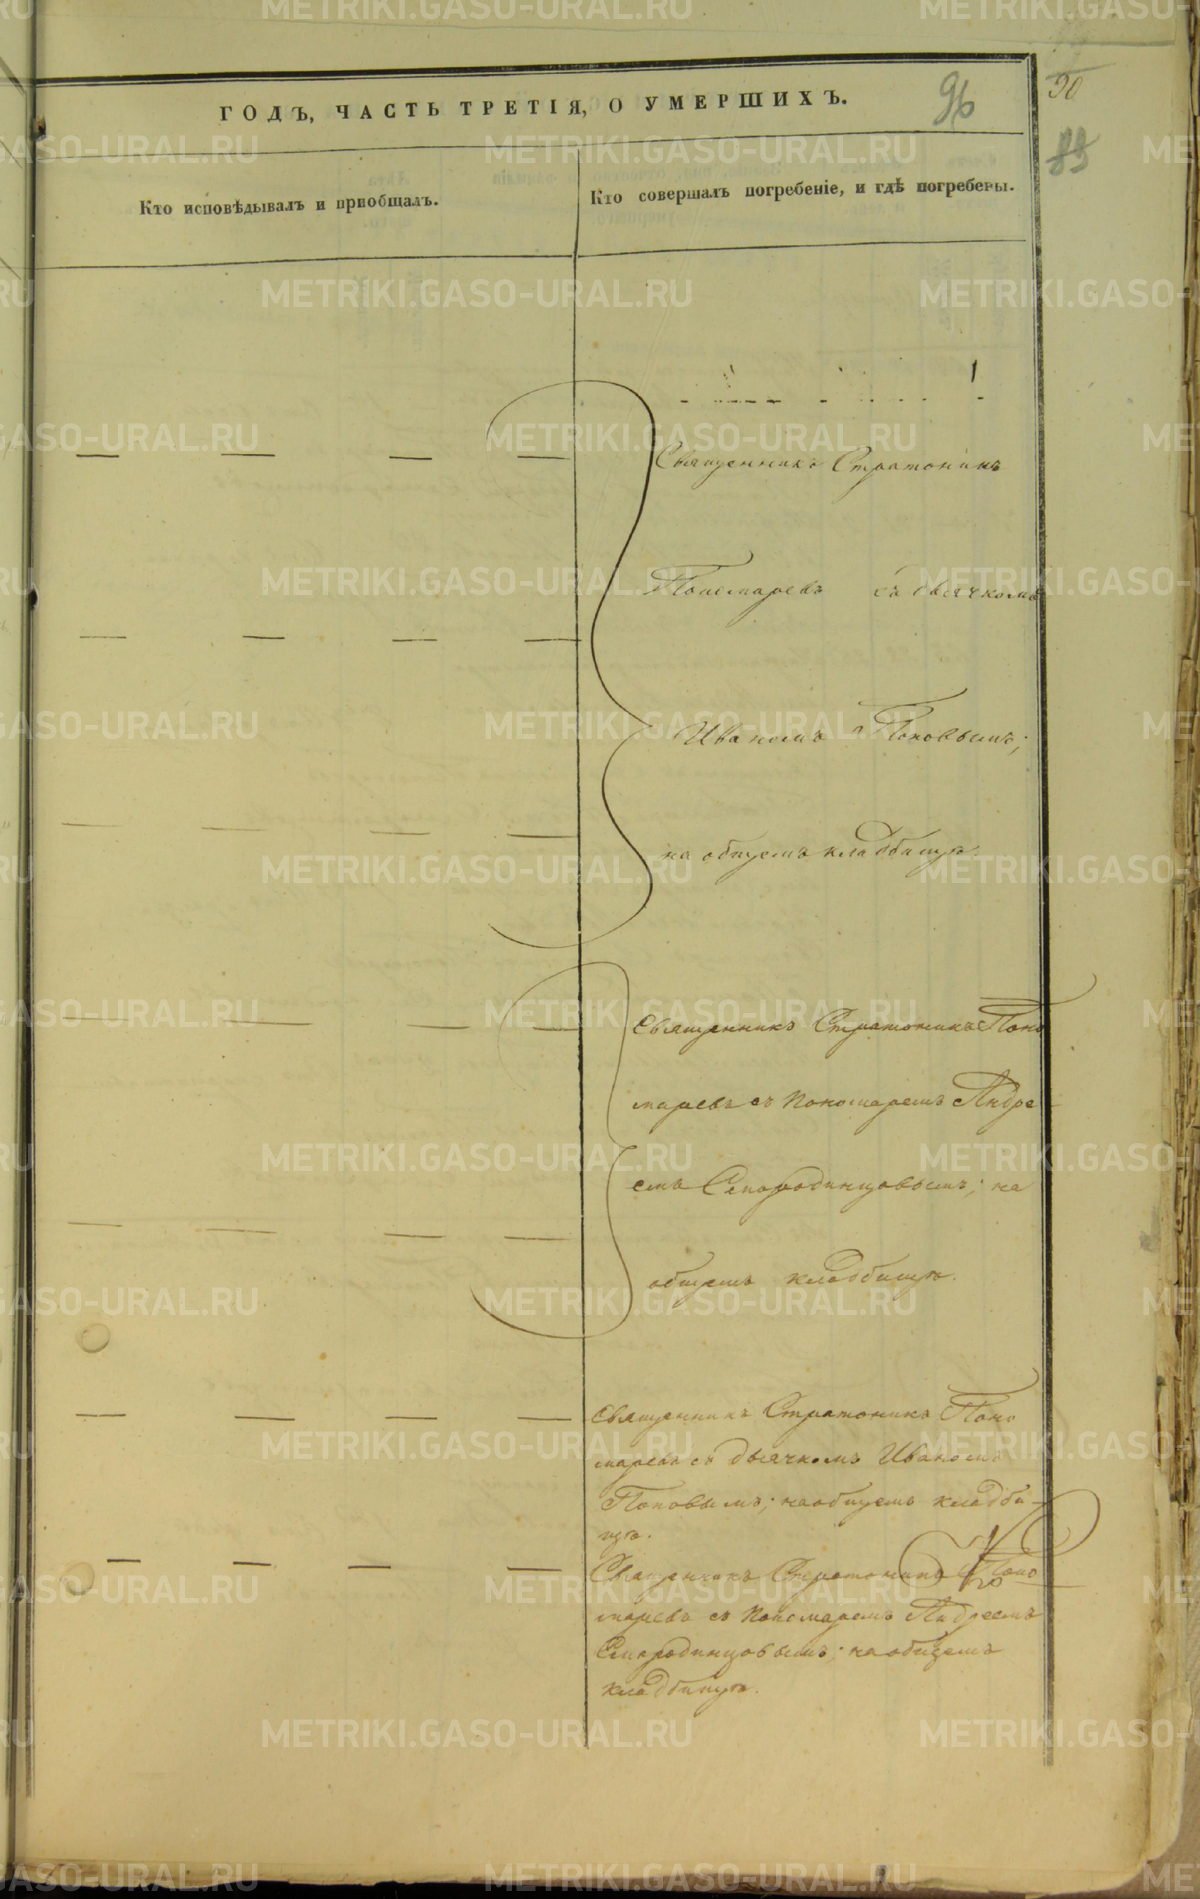 ГОДЪ, ЧАСТЬ ТРЕТІЯ, О УМЕРШИХЪ.
96
90
Кто исповѣдывалъ и пріобщалъ.
Кто совершалъ погребеніе, и гдѣ погребены.
Священникъ Стратоникъ
Пономаревъ съ дьячкомъ
Иваномъ Поповымъ;
на общемъ кладбищѣ.
Священникъ Стратоникъ Поно
маревъ съ пономаремъ Андре
емъ Смородинцовымъ; на
общемъ кладбищѣ.
Священникъ Стратоникъ Поно
маревъ съ дьячкомъ Иваномъ
Поповымъ; на общемъ кладби-
щѣ.
Священникъ Стратоникъ Поно
маревъ съ пономаремъ Андреемъ
Смородинцовымъ; на общемъ
кладбищѣ.
METRIKI.GASO-URAL.RU